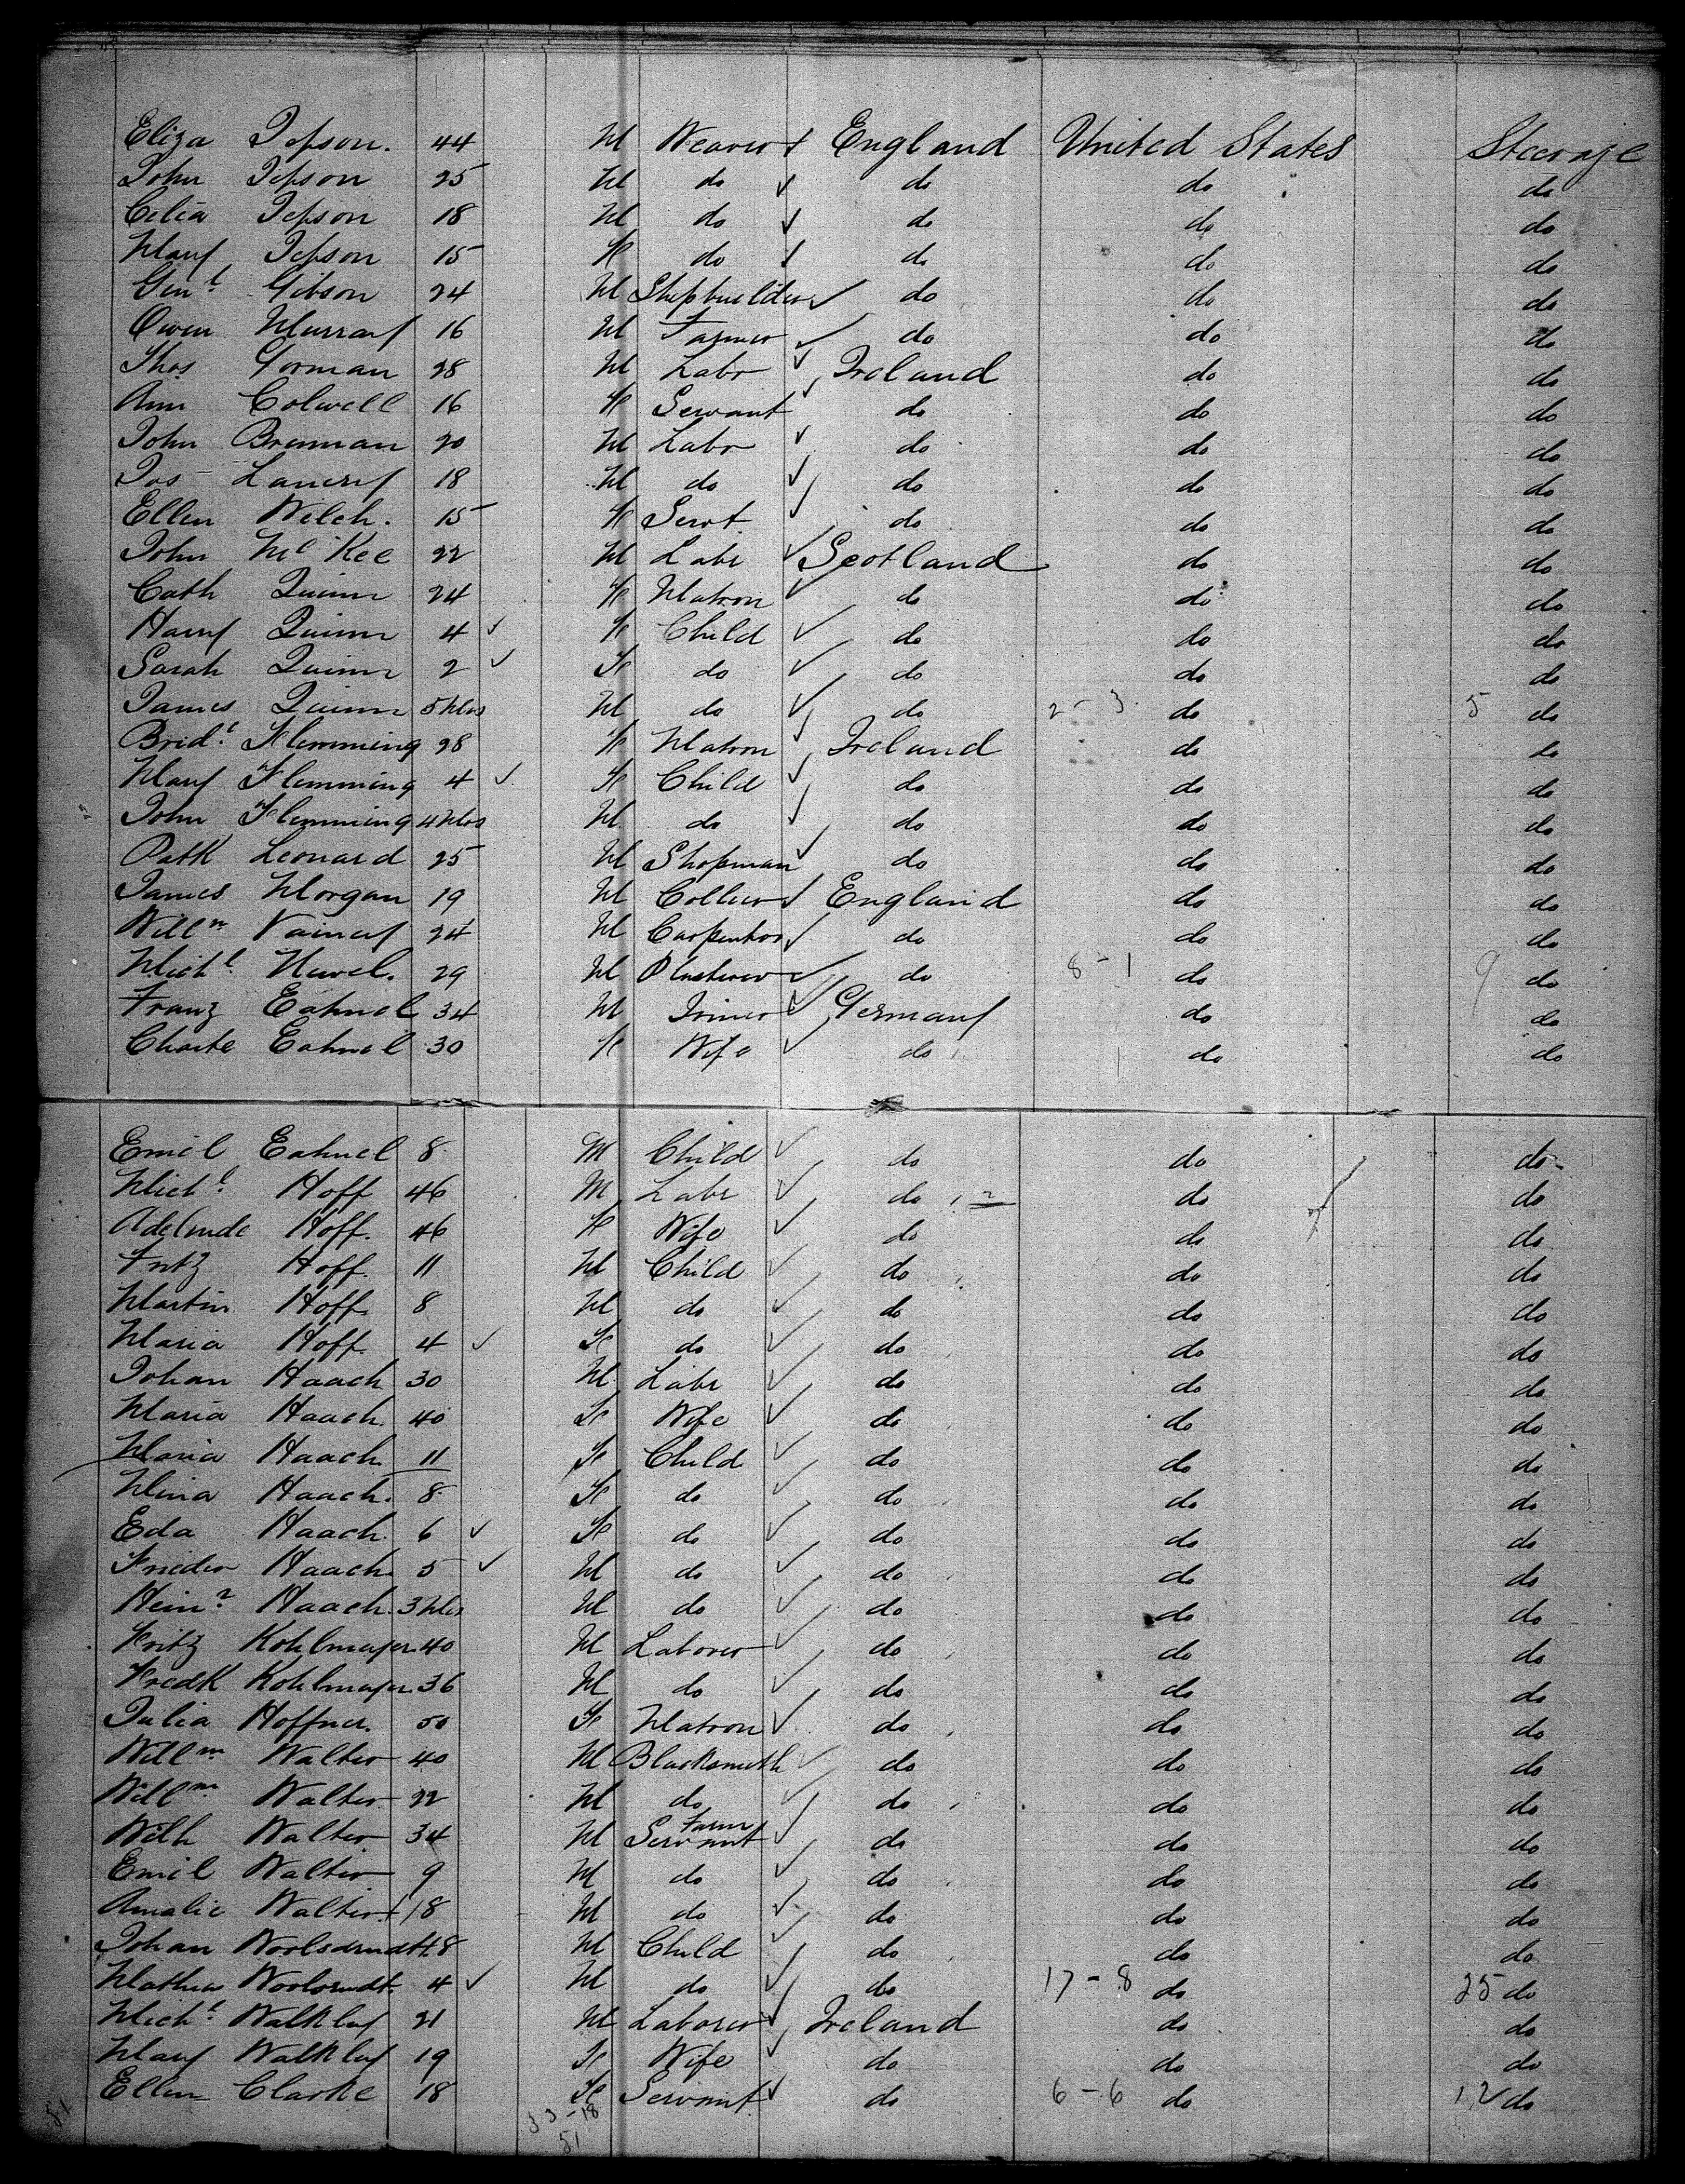 Eliza Jepson. 44 M Weaver England United States Steerage
John Jepson 25 M do do do do
Celia Jepson 18 M do do do do
Mary Jepson 15 F do do do do
Gibson 24 M Shipbuilder do do do
Owen Murray 16 M Farmer do do do
Thos Gorman 28 M Labr Ireland do do
Ann Colwell 16 F Servant do do do
John Brennan 20 M Labr do do do
Jos 18 M do do do do
Ellen Welch. 15 F Servt do do do
John McKee 22 M Labr Scotland do do
Cath Quinn 24 F Matron do do do
Harry Quinn 4 F Child do do do
Sarah Quinn 2 F do do do do
James Quinn 5 Mos M do do 2-3 do 5 do
Bridt Flemming 28 F Matron Ireland do do
Mary Flemming 4 F Child do do do
John Flemming 4 Mos M do do do do
Patk Leonard 25 M Shopman do do do
James Morgan 19 M Collier England do do
Willm 24 M Carpenter do do do
Michl 29 M Plasterer do 8-1 do 9 do
Franz Eahnel 34 M Joiner Germany do do
Eahnel 30 F Wife do do do
Emil Eahnel 8 M Child do do do
Michl Hoff 46 M Labr do do do
Hoff. 46 F Wife do do do
Fritz Hoff. 11 M Child do do do
Martin Hoff 8 M do do do do
Maria Hoff. 4 F do do do do
Johan Haach 30 M Labr do do do
Maria Haach. 40 F Wife do do do
Maria Haach 11 F Child do do do
Mina Haach. 8 F do do do do
Eda Haach. 6 F do do do do
Frieder Haach. 5 M do do do do
Heinr Haach. 3 Mos M do do do do
Fritz Kohlmajer 40 M Laborer do do do
Fredk Kohlmajer 36 M do do do do
Julia Hoffner. 50 F Matron do do do
Willm Walter 40 M Blacksmith do do do
Willm Walter 22 M do do do do
Wilh Walter 34 M Farm Servant do do do
Emil Walter 9 M do do do do
Amalie Walter 18 M do do do do
Johan 8 M Child do do do
4 M do do 17-8 do 25 do
Michl Walkley 21 M Laborer Ireland do do
Mary Walkley 19 F Wife do do do
Ellen Clarke 18 F Servant do 6-6 do 12 do
51 33-18
51